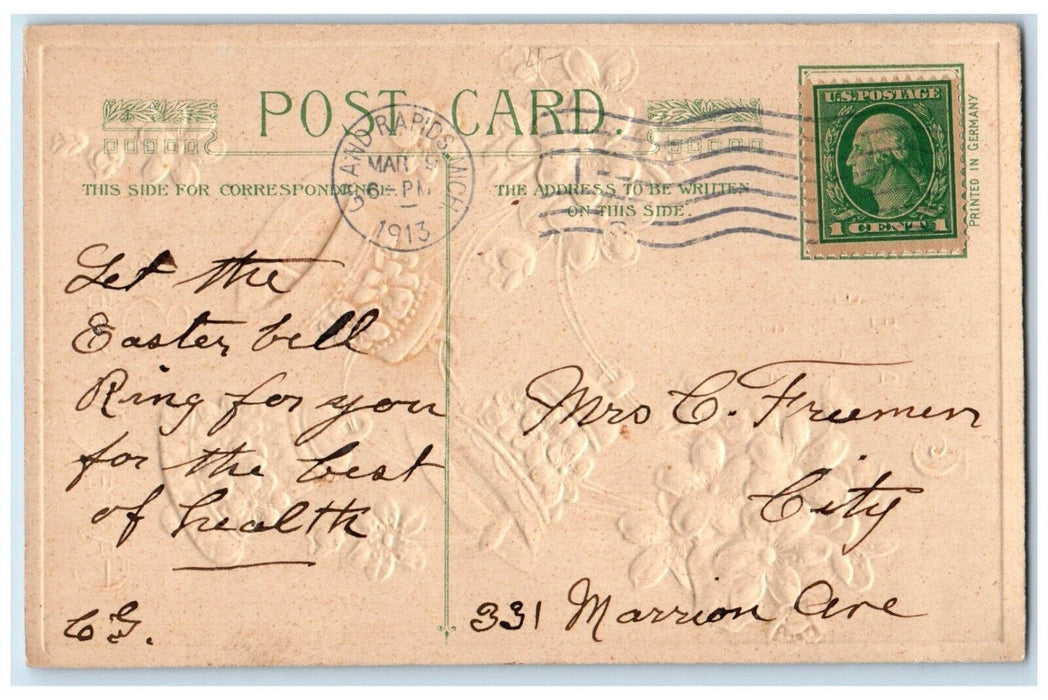 POST CARD.
THIS SIDE FOR CORRESPONDENCE
THE ADDRESS TO BE WRITTEN
ON THIS SIDE.
GRAND RAPIDS, MICH
MAR 9
6 - PM
1913
U.S. POSTAGE
1 CENT 1
PRINTED IN GERMANY
Let the
Easter bell
Ring for you
for the best
of health
C G.
Mrs C. Freemen
City
331 Marrion Ave